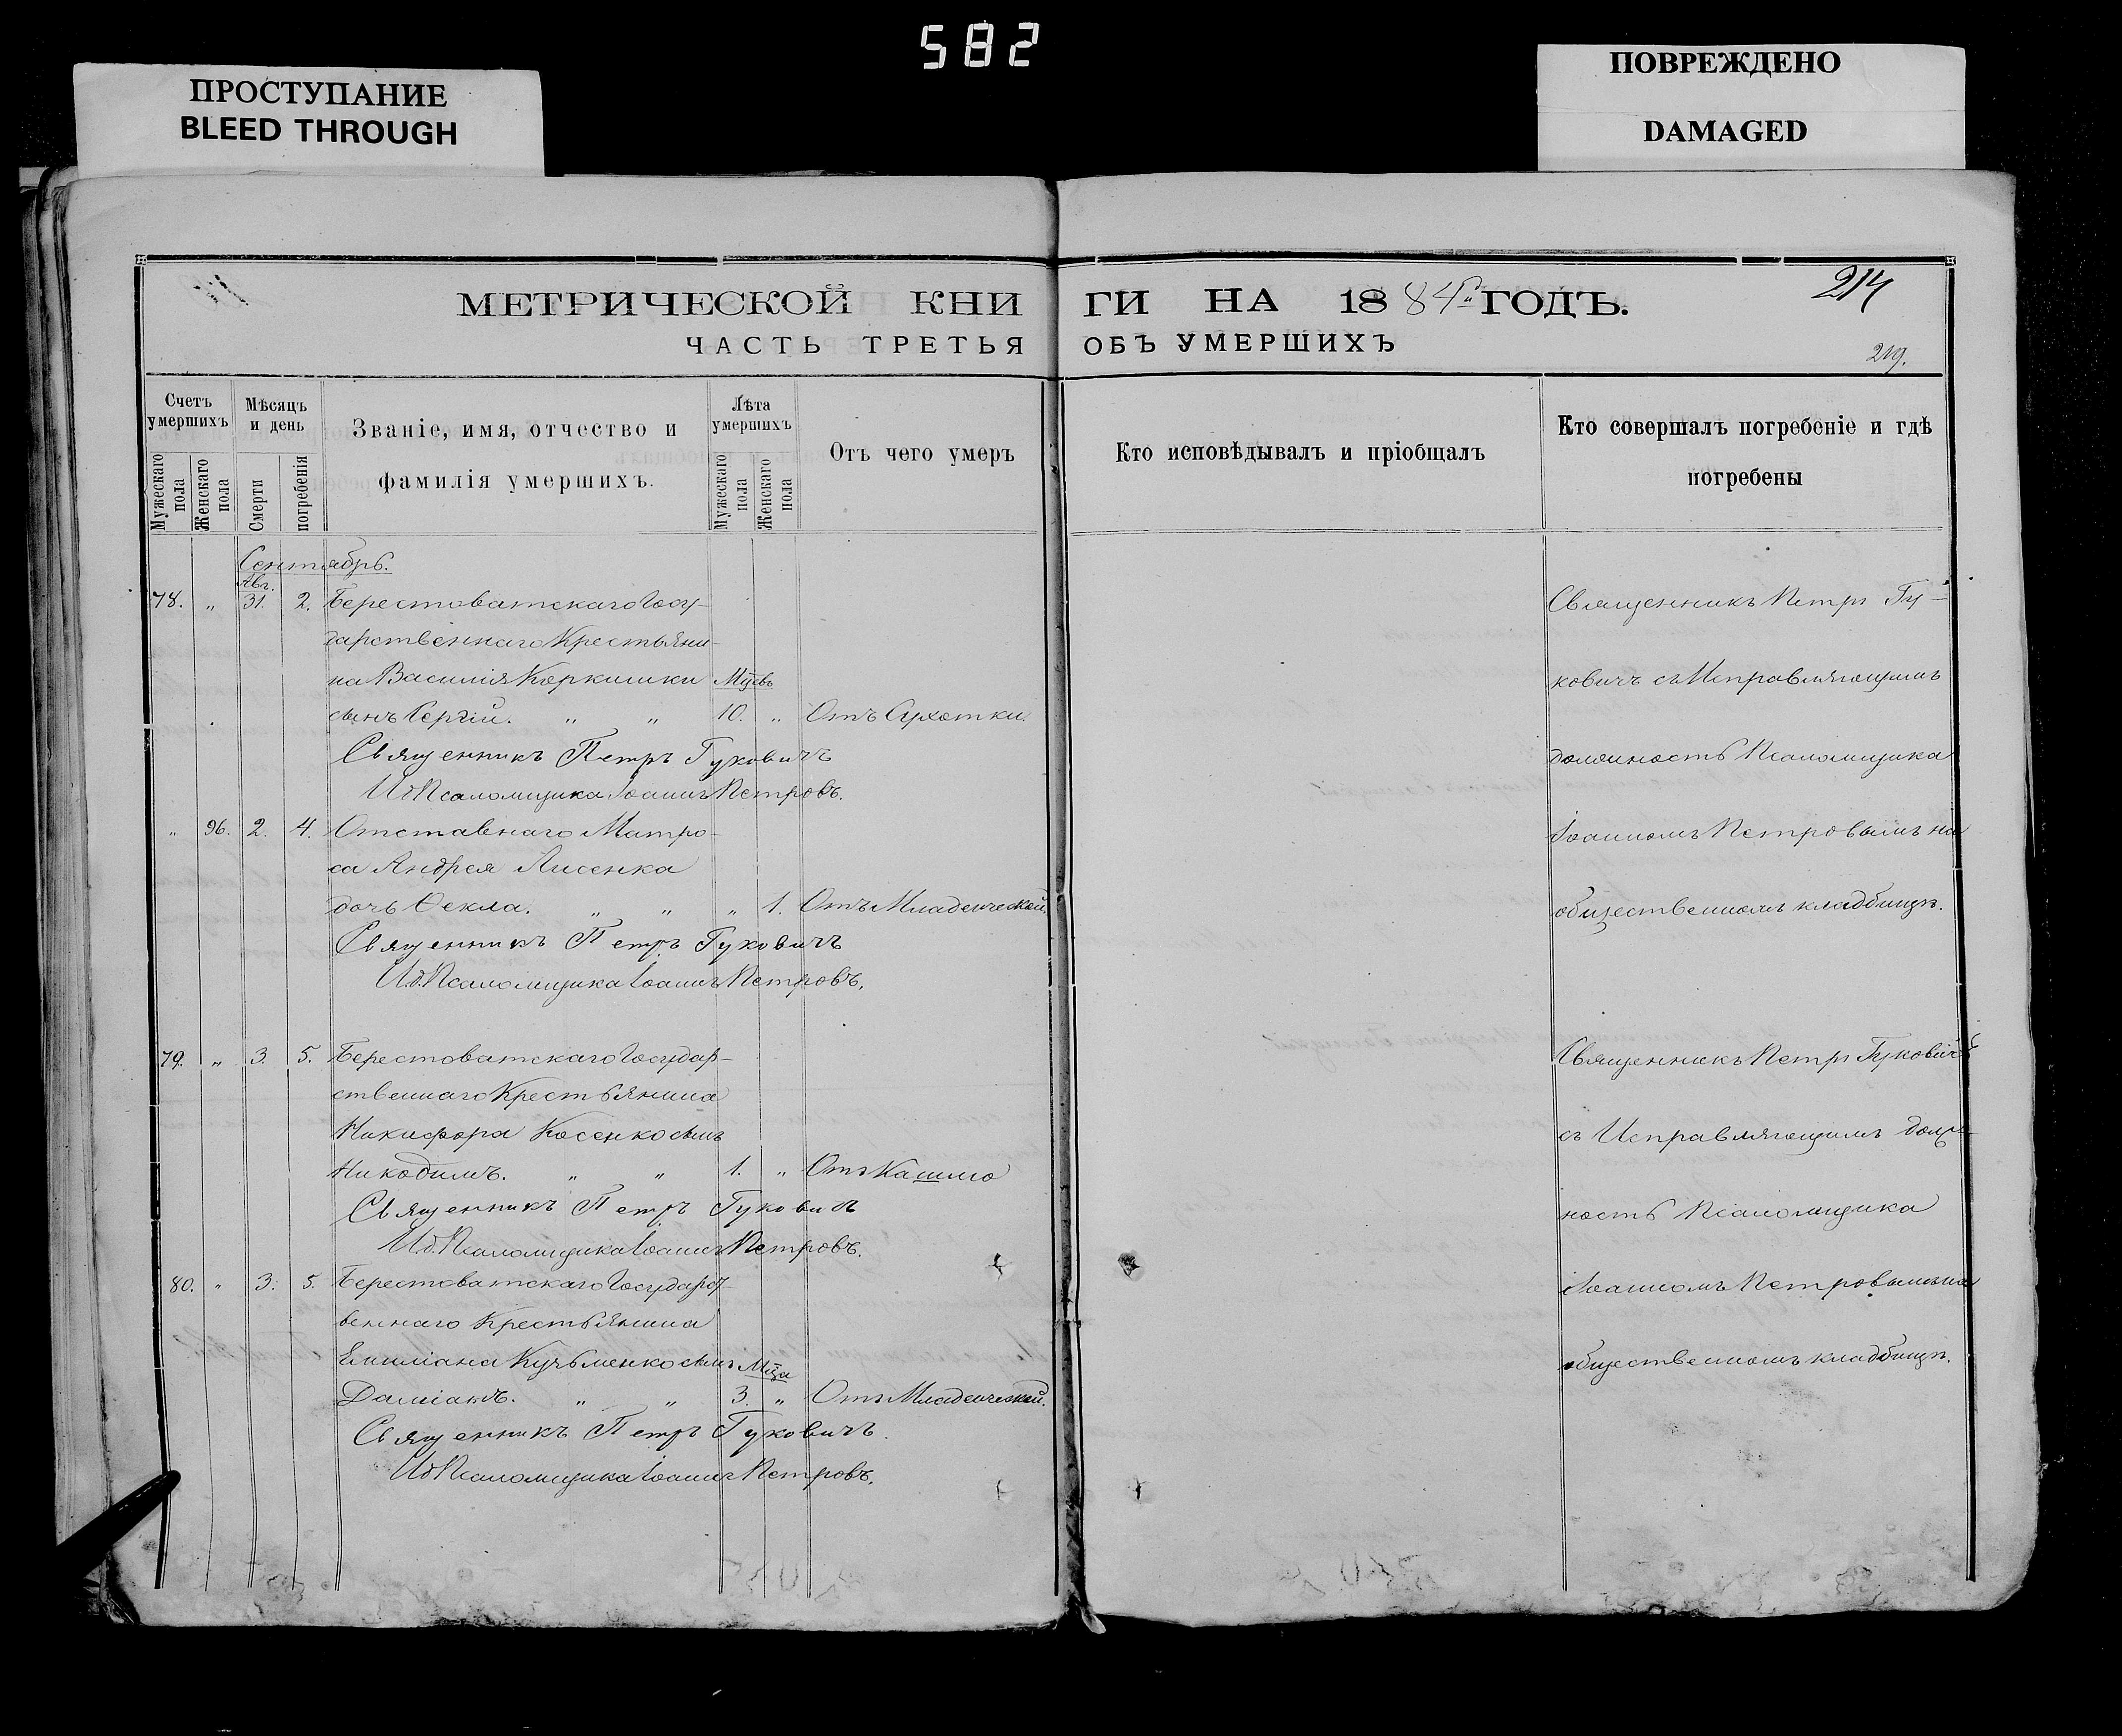 582
ПРОСТУПАНИЕ
BLEED THROUGH
ПОВРЕЖДЕНО
DAMAGED
МЕТРИЧЕСКОЙ КНИГИ НА 1884й ГОДЪ.
214
ЧАСТЬ ТРЕТЬЯ ОБЪ УМЕРШИХЪ
219.
Счетъ умершихъ
Мужескаго пола
Женскаго пола
Мѣсяцъ и день
Смерти
погребенія
Званіе, имя, отчество и
фамилія умершихъ.
Лѣта умершихъ
Мужескаго пола
Женскаго пола
Отъ чего умеръ
Кто исповѣдывалъ и пріобщалъ
Кто совершалъ погребеніе и гдѣ
погребены
Сентябрь.
Авг.
78. „ 31. 2. Берестоватскаго Госу-
дарственнаго Крестьяни-
на Василія Коркишки Мцевъ
сынъ Сергій. „ „ 10. „ Отъ Сухотки.
Священникъ Петръ Гуковичъ
Ид Псаломщика Іоаннъ Петровъ.
„ 96. 2. 4. Отставнаго Матро-
са Андрея Лисенка
дочь Ѳекла. „ „ „ 1. Отъ Младенческой.
Священникъ Петръ Гуковичъ
Ид. Псаломщика Іоаннъ Петровъ.
79. „ 3. 5. Берестоватскаго Государ-
ственнаго Крестьянина
Никифора Косенко сынъ
Никодимъ. „ „ 1. „ Отъ Кашлю
Священникъ Петръ Гуковичъ
Ид. Псаломщика Іоаннъ Петровъ.
80. „ 3. 5. Берестоватскаго Государст-
веннаго Крестьянина
Емиліана Кузьменко сынъ Мца
Даміанъ. „ „ 3. „ Отъ Младенческой.
Священникъ Петръ Гуковичъ.
Ид Псаломщика Іоаннъ Петровъ.
Священникъ Петръ Гу-
ковичъ съ Исправляющимъ
должность Псаломщика
Іоанномъ Петровымъ на
общественномъ кладбищѣ.
Священникъ Петръ Гуковичъ
съ Исправляющимъ долж-
ность Псаломщика
Іоанномъ Петровымъ на
общественномъ кладбищѣ.